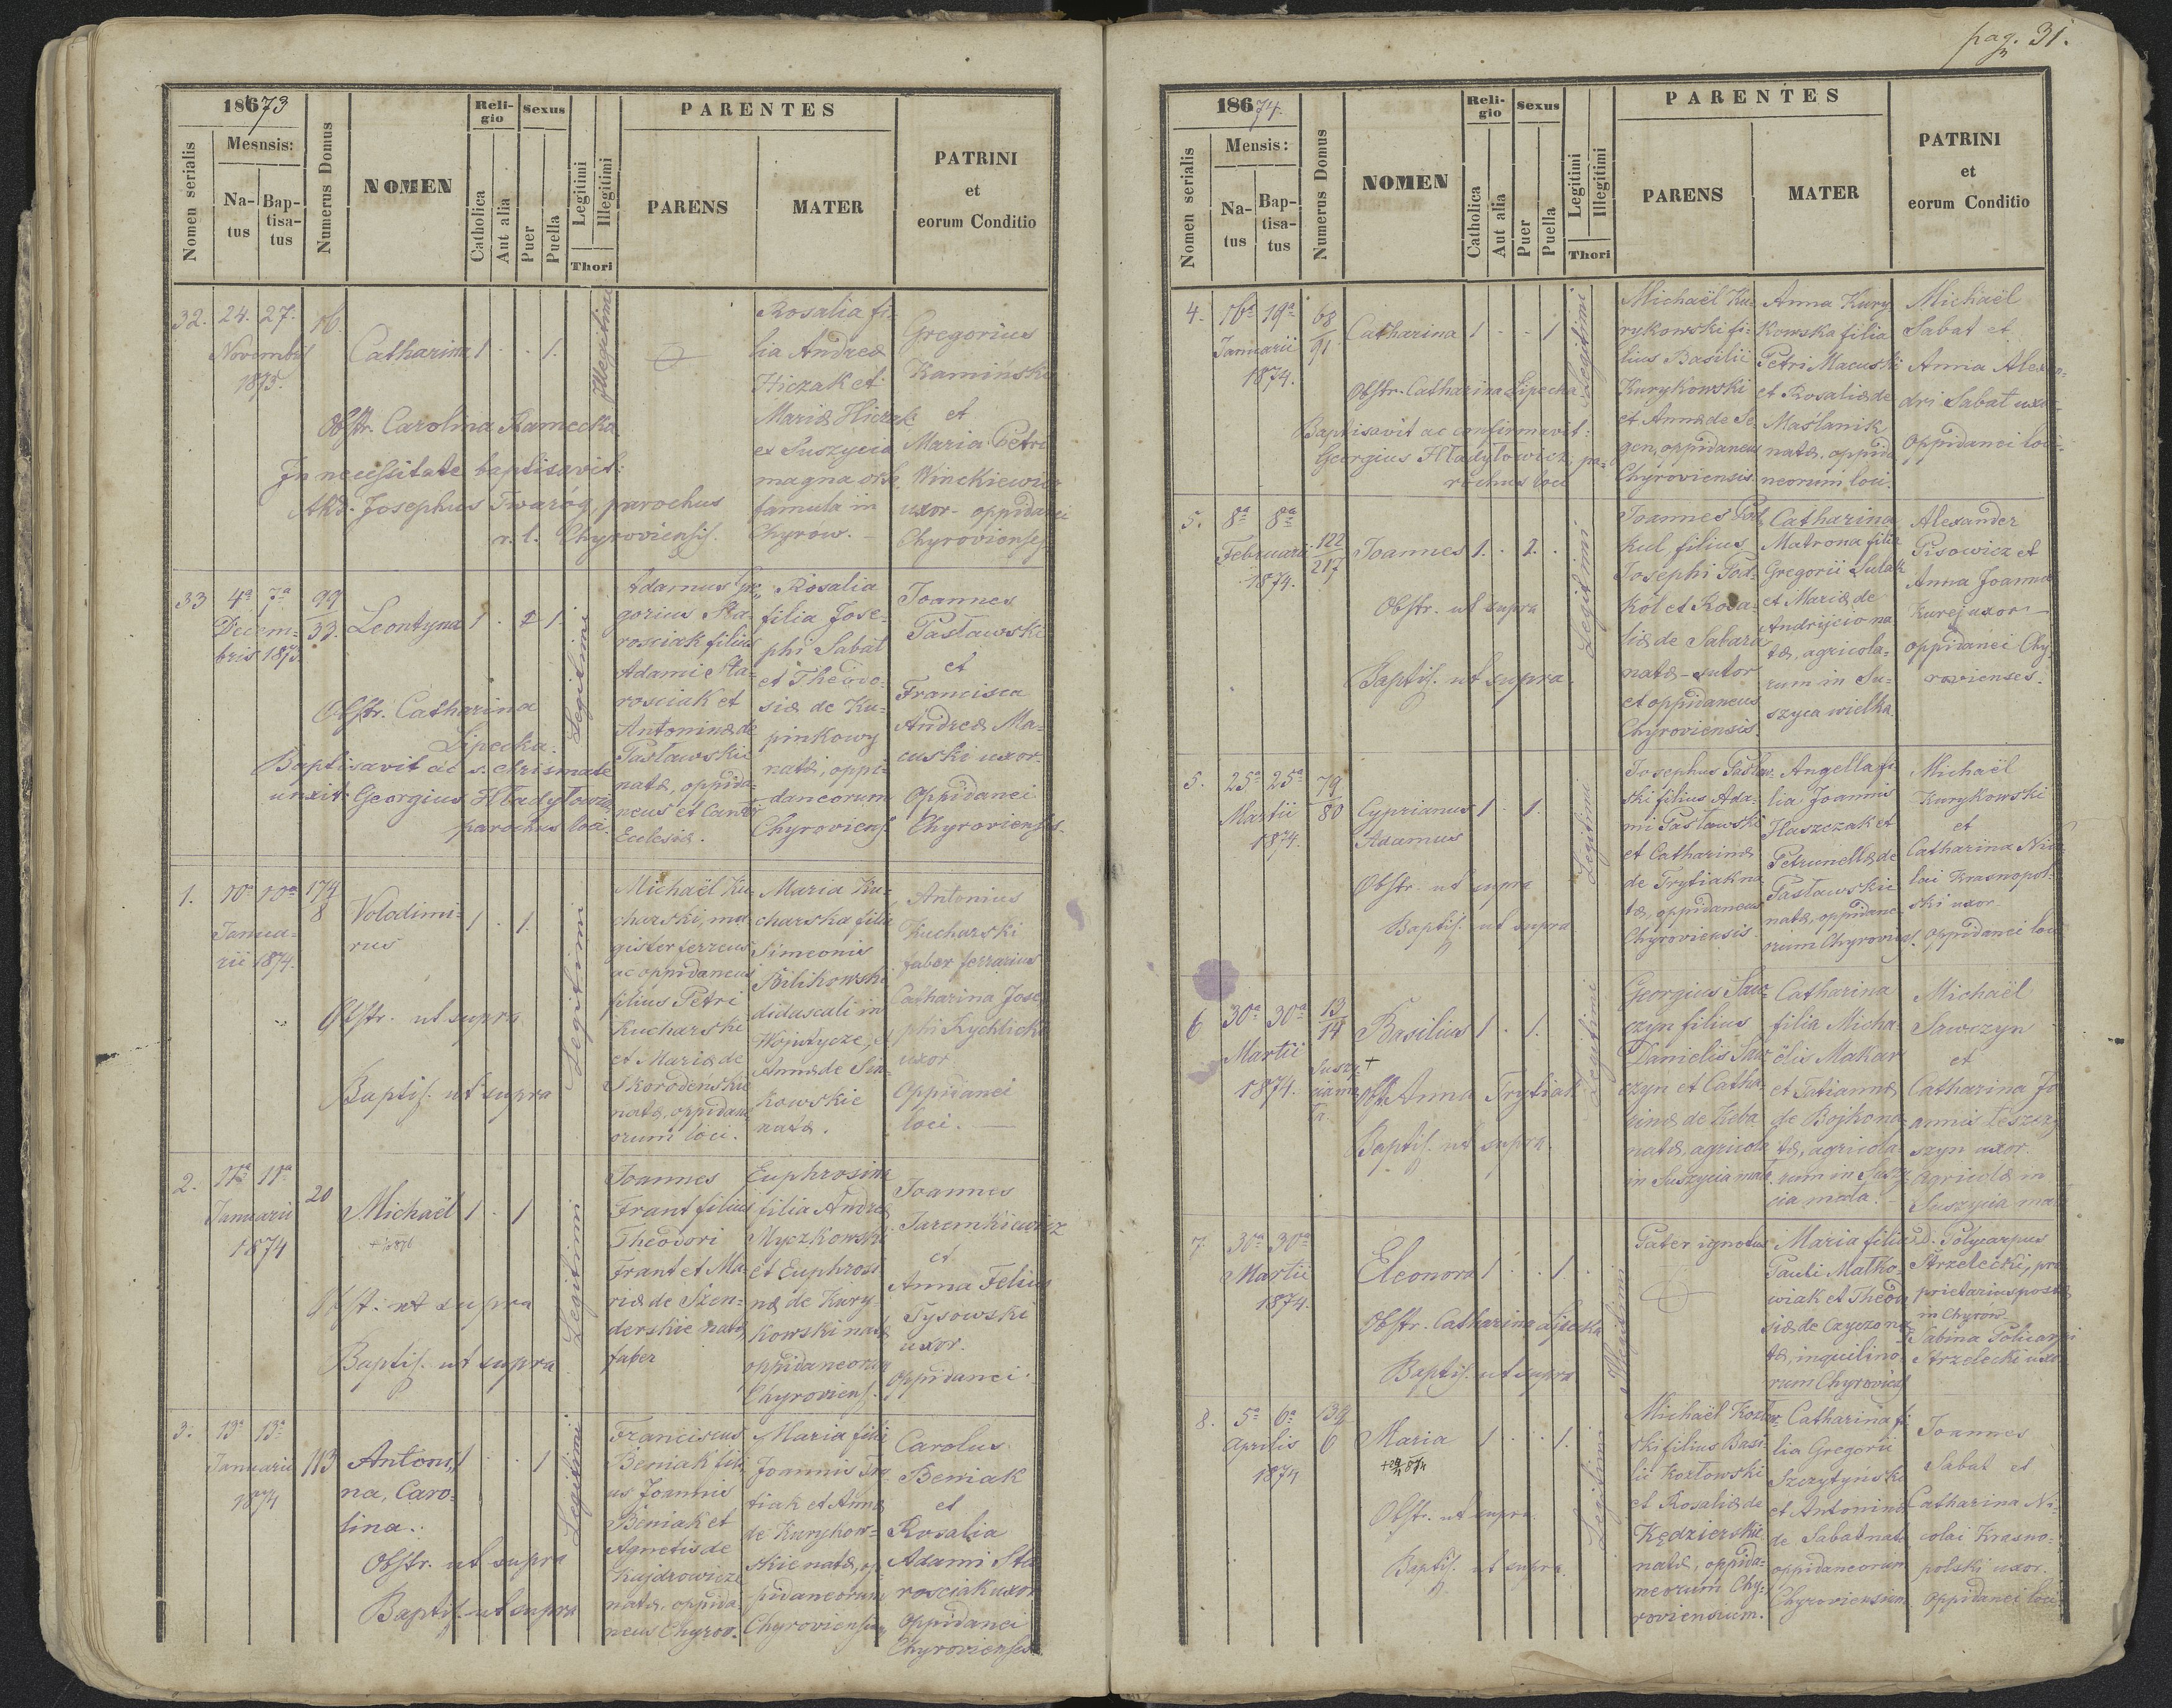 pag. 31.
18673
Mesnsis:
Nomen serialis
Na-
tus
Bap-
tisa-
tus
Numerus Domus
NOMEN
Reli-
gio
Catholica
Aut alia
Sexus
Puer
Puella
Legitimi
Illegitimi
Thori
PARENTES
PARENS
MATER
PATRINI
et
eorum Conditio
32. 24. 27.
Novembr
1873.
Catharina 1 . . 1.
Illegitimi
Obstr. Carolina Ramecka
In necessitate baptisavit:
Josephus Twaróg, parochus
r. l. Chyroviensis.
Rosalia fi-
lia Andreæ
Hiczak et
Mariæ Hiczak
ex Suszyca
magna orta,
famula in
Chyrów. -
Gregorius
Kamiński
et
Maria Petri
Winckiewicz
uxor - oppidanei
Chyrovienses
33 4ª 7ª 99
Decem-
bris 1873
33.
Leontyna 1 . 1.
Legitimi
Obstr. Catharina
Lipecka.
Baptisavit ac s. chrismate
unxit Georgius Hładyłowicz
parochus loci.
Adamus Gre-
gorius Sta-
rosciak filius
Adami Sta-
rosciak et
Antoninæ de
Pasławskie
natæ, oppida-
neus et Cantor
Ecclesiæ.
Rosalia
filia Jose-
phi Sabat
et Theodo-
siæ de Ku-
pinkowy
natæ, oppi-
daneorum
Chyroviens.
Joannes
Pasławski
et
Francisca
Andreæ Ma-
cuski uxor.
Oppidanei
Chyrovienses.
1. 10ª 10ª 174
8
Janua-
rii 1874.
Volodimi-
rus
1 . 1.
Legitimi
Obstr. ut supra
Baptis. ut supra
Michaël Ku-
charski, ma-
gister ferreus
ac oppidaneus
filius Petri
Kucharski
et Mariæ de
Skorodeńskie
natæ, oppidane
orum loci.
Maria Ku-
charska filia
Simeonis
Bilikowski
didascali in
Wojutycze, et
Annæ de Sin-
kowskie
natæ.
Antonius
Kucharski
faber ferrarius
Catharina Jose
phi Rychlicki
uxor
Oppidanei
loci. -
2. 11ª 11ª 20
Januarii
1874
Michaël 1 . 1
Legitimi
Obst. ut supra
Baptis. ut supra
Joannes
Frant filius
Theodori
Frant et Ma-
riæ de Szen-
derskie natæ,
faber
Euphrosina
filia Andreæ
Myczkowski
et Euphrosi
næ de Kury-
kowski natæ
oppidaneorum
Chyroviens.
Joannes
Jaremkiewicz
et
Anna Felius
Tysowski
uxor.
Oppidanei
3. 13ª 13ª
Januarii 113
1874
Antoni-
na, Caro-
lina.
1 . . 1
Legitimi
Obstr. ut supra
Baptis. ut supra
Franciscus
Beniak fili-
us Joannis
Beniak et
Agnetis de
Kujdrowicze
natæ, oppida-
neus Chyrov.
Maria filia
Joannis
tiak et Annæ
de Kurykow-
skie natæ, op-
pidaneorum
Chyroviensium
Carolus
Beniak
et
Rosalia
Adami Sta
rosciak uxor
Oppidanei
Chyrovienses.
18674.
Mensis:
Nomen serialis
Na-
tus
Bap-
tisa-
tus
Numerus Domus
NOMEN
Reli-
gio
Catholica
Aut alia
Sexus
Puer
Puella
Legitimi
Illegitimi
Thori
PARENTES
PARENS
MATER
PATRINI
et
eorum Conditio
4. 16ª 19ª 68
91
Januarii
1874.
Catharina 1 . - 1
Legitimi
Obstr. Catharina Lipecka
Baptisavit ac confirmavit:
Georgius Hładyłowicz pa-
rochus loci
Michaël Ku-
rykowski fi-
lius Basilii
Kurykowski
et Annæ de Se-
gen, oppidaneus
Chyroviensis
Anna Kury
kowska filia
Petri Macuski
et Rosaliæ de
Maślanik
natæ, oppida
neorum loci.
Michaël
Sabat et
Anna Alexan-
dri Sabat uxor
Oppidanei loci.
5. 8ª 8ª 122
217
Februarii
1874.
Joannes 1. . 1.
Legitimi
Obstr. ut supra
Baptis. ut supra.
Joannes Pod-
kul filius
Josephi Pod-
kól et Rosa-
liæ de Sabara
natæ - sutor
et oppidaneus
Chyroviensis.
Catharina
Matrona filia
Gregorii Sulak
et Mariæ de
Andrijcio na
tæ, agricola-
rum in Su-
szyca wielka.
Alexander
Pisowicz et
Anna Joannis
Kurej uxor -
oppidanei Chy-
rovienses.
5. 25ª 25ª 79
80
Martii
1874.
Cyprianus 1 . 1.
Adamus
Legitimi
Obstr. ut supra
Baptis. ut supra
Josephus Pasław-
ski filius Ada-
mi Pasławski
et Catharinæ
de Trytiak na
tæ, oppidaneus
Chyroviensis
Angella fi-
lia Joannis
Haszczak et
Petrunellæ de
Pasławskie
natæ, oppidane-
orum Chyroviens.
Michaël
Kurykowski
et
Catharina Nico
lai Krasnopol-
ski uxor
Oppidanei loci
6 30ª 30ª 13
14
Martii
1874.
Basilius 1 . 1.
Legitimi
Obst. Anna Trytiak
Baptis. ut supra.
Georgius Saw-
czyn filius
Danielis Saw
czyn et Catha
rinæ de Keba
natæ, agricola
in Suszycia mała
Catharina
filia Micha-
ëlis Makar
et Tatiannæ
de Bojko na-
tæ, agricola-
rum in Suszy-
cia mała.
Michaël
Sawczyn
et
Catharina Jo
annis Leszczy
szyn uxor.
agricolæ in
Suszycia mała
7. 30ª 30ª
Martii
1874.
Eleonora 1 . . 1.
Illegitimi
Obstr. Catharina Lipecka
Baptis. ut supra
Pater ignotus
Maria filia
Pauli Matko-
wiak et Theodo
siæ de Czyczo na
tæ, inquilino-
rum Chyroviens.
D. Polycarpus
Strzelecki, pro
prietarius postæ
in Chyrów
Sabina Policarpi
Strzelecki uxor
8. 5ª 6ª 139
6
Aprilis
1874
Maria 1 . . 1.
Legitimi
Obstr. ut supra.
Baptis. ut supra.
Michaël Kozłow-
ski filius Basi
lii Kozłowski
et Rosaliæ de
Kędzierskie
natæ, oppida-
neorum Chy-
roviensium.
Catharina fi
lia Gregorii
Szczytyński
et Antoninæ
de Sabat natæ
oppidaneorum
Chyroviensium
Joannes
Sabat et
Catharina Ni-
colai Krasno-
polski uxor.
Oppidanei loci.